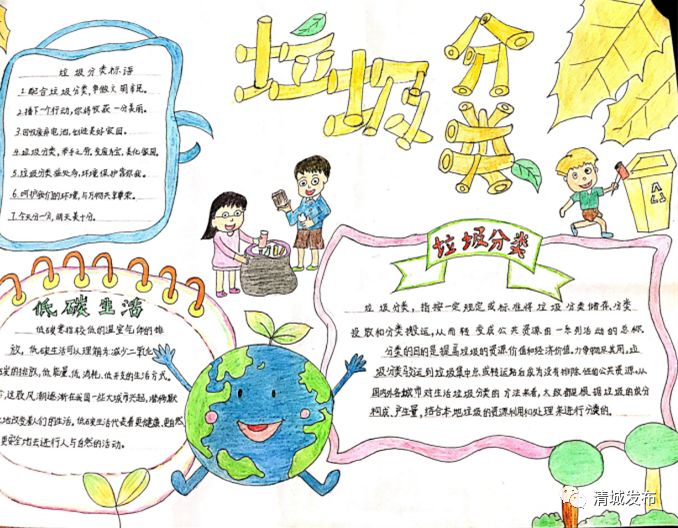 垃圾分类
垃圾分类标语
1.配合垃圾分类,争做文明市民。
2.播下一个行动,你将收获一份美丽。
3.回收废弃电池,创造美好家园。
4.垃圾分类,举手之劳,变废为宝,美化家园。
5.垃圾分类益处多,环境保护靠你我。
6.呵护我们的环境,与万物共享
7.今天分一分,明天美十分。
低碳生活
低碳意指较低的温室气体的排
放,低碳生活可以理解为减少二氧化
的排放,低能量、低消耗、低开支的生活方式。
这股风潮逐渐在我国一些大城市兴起,潜移默
地改变着人们的生活,低碳生活代表着更健康、更自然
更安全地去进行人与自然的活动。
垃圾分类
垃圾分类,指按一定规定或标准将垃圾分类储存、分类
投放和分类搬运,从而转变成公共资源的一系列活动的总称。
分类的目的是提高垃圾的资源价值和经济价值,力争物尽其用。垃
圾分类投运到垃圾集中点或转运站后成为没有排除
国内外各城市对生活垃圾分类的方法来看,大致都是根据垃圾的成分
构成、产生量,结合本地垃圾的资源利用和处理来进行分类的。
清城发布